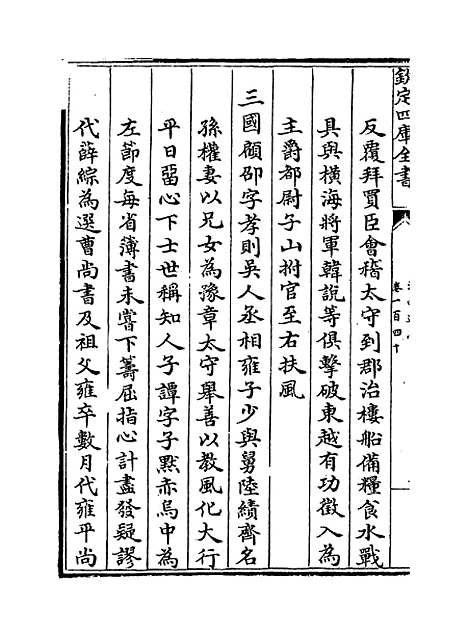 欽定四庫全書
卷一百四十
反覆拜買臣會稽太守到郡治樓船備糧食水戰
具與橫海將軍韓說等俱擊破東越有功徵入為
主爵都尉子山拊官至右扶風
三國顧邵字孝則吳人丞相雍子少與舅陸績齊名
孫權妻以兄女為豫章太守舉善以教風化大行
平日留心下士世稱知人子譚字子默赤烏中為
左節度每省簿書未嘗下籌屈指心計盡發疑謬
代薛綜為選曹尚書及祖父雍卒數月代雍平尚